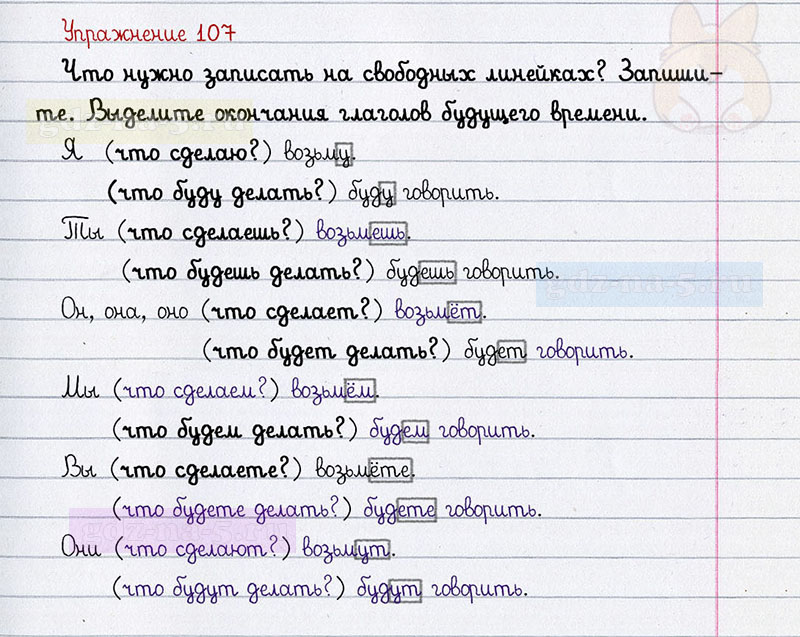 Упражнение 107
Что нужно записать на свободных линейках? Запиши-
те. Выделите окончания глаголов будущего времени.
Я (что сделаю?) возьму.
(что буду делать?) буду говорить.
Ты (что сделаешь?) возьмешь.
(что будешь делать?) будешь говорить.
gdz-na-5.ru
Он, она, оно (что сделает?) возьмёт.
(что будет делать?) будет говорить.
Мы (что сделаем?) возьмём.
(что будем делать?) будем говорить.
Вы (что сделаете?) возьмёте.
(что будете делать?) будете говорить.
gdz-na-5.ru
Они (что сделают?) возьмут.
(что будут делать?) будут говорить.